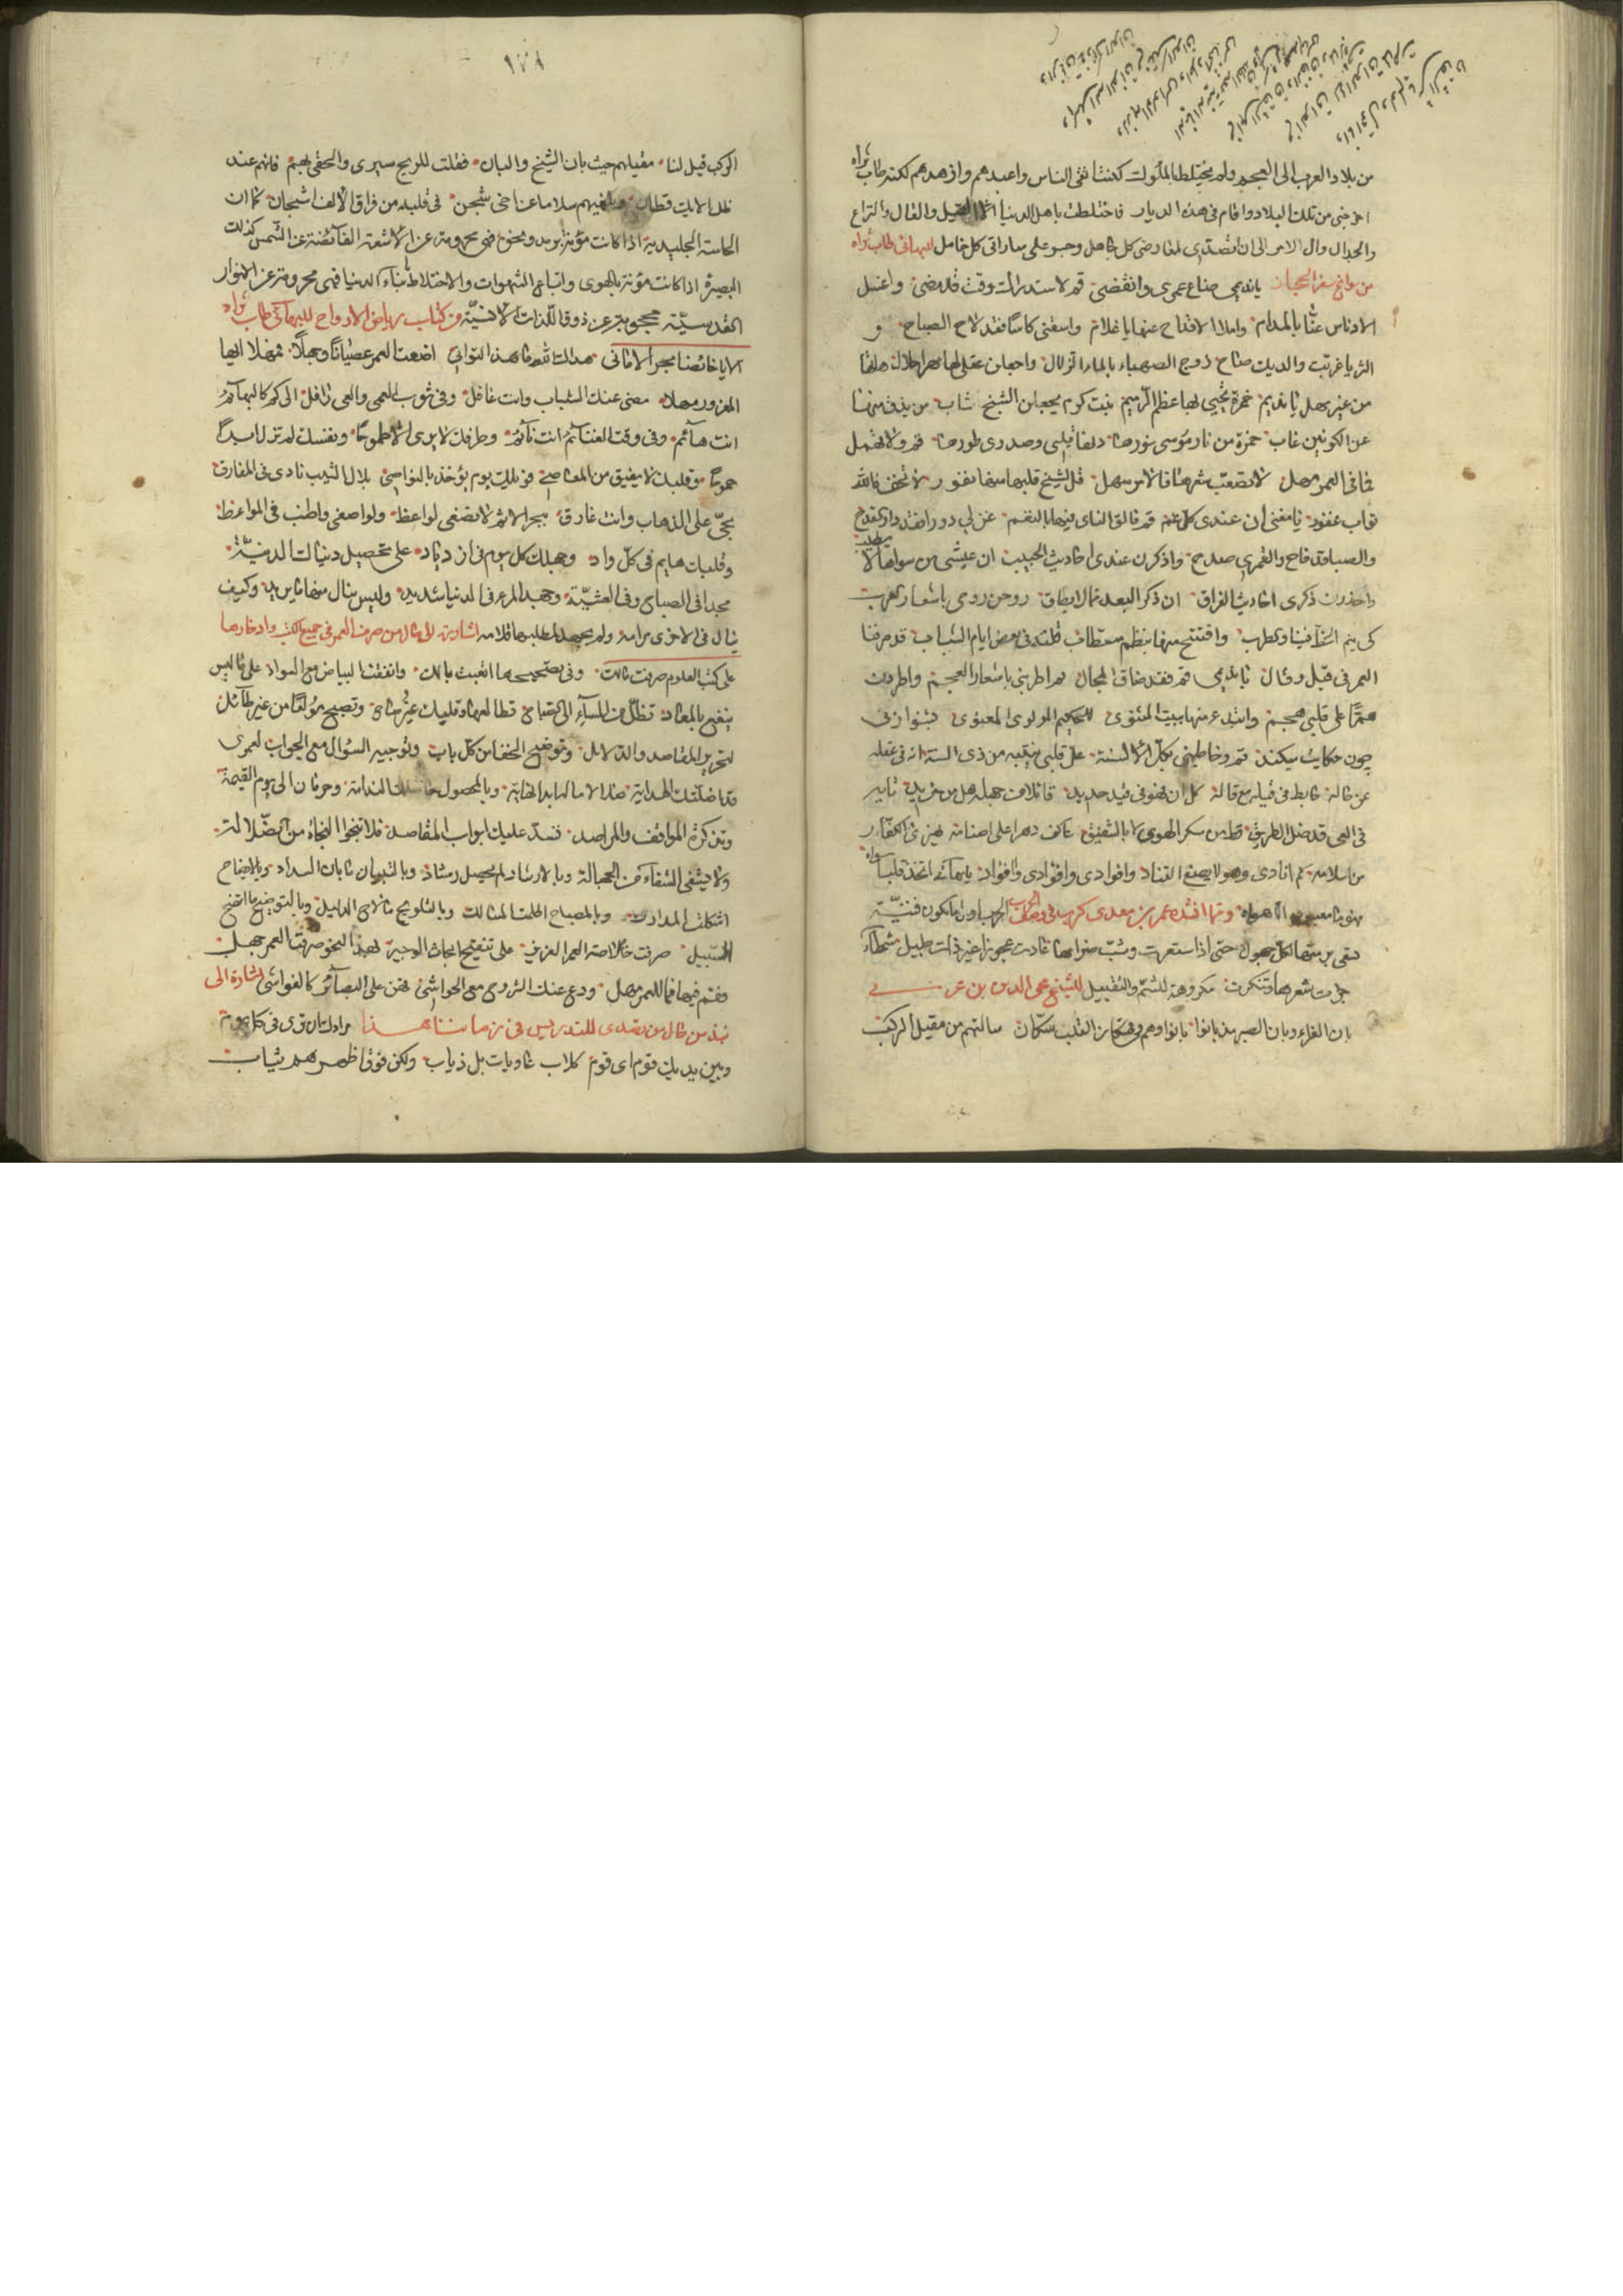 من بلاد العرب الى العجم ولم يختلط بالملوك لكنت اتقى الناس واعبدهم وازهدهم لكنه طاب ثراه
اخرجني من تلك البلاد واقام في هذه الديار فاختلطت باهل الدنيا القيل والقال والنزاع
والجدال وآل الامر الى ان تصدى لمعارضتي كل جاهل وجسر على مباراتي كل خامل للبهائي طاب ثراه
من سوانح سفر الحجاز يا نديمي ضاع عمري وانقضى قم لاستدراك وقت قد مضى واغسل
الادناس عنا بالمدام واملأ الاقداح منها يا غلام واسقني كاسا فقد لاح الصباح و
الثريا غربت والديك صاح زوج الصهباء بالماء الزلال واجعلن عقلي لها مهرا حلال هاتها
من غير مهل يا نديم خمرة يحيى بها عظم الرميم بنت كرم يجعلن الشيخ شاب من يذق منها
عن الكونين غاب خمرة من نار موسى نورها دنها قلبي وصدري طورها قم ولا تمهل
فما في العمر مهل لا تصعب شربها فالامر سهل قل لشيخ قلبه منها نفور لا تخف فالله
تواب غفور يا مغني ان عندي كل غم قم فالق الناي فيها بالنغم غن لي دورا فقد دار القدح
والصبا قد فاح والقمري صدح واذكرن عندي احاديث الحبيب ان عيشي من سواها لا يطيب
واحذرن ذكرى احاديث الفراق ان ذكر البعد مما لا يطاق روحن روحي باشعار العرب
كي يتم الحظ فينا والطرب وافتتح منها بنظم مستطاب قلته في بعض ايام الشباب قد صرفنا
العمر في قيل وقال يا نديمي قم فقد ضاق المجال ثم اطربني باشعار العجم واطردن
هما على قلبي هجم وابتدء منها ببيت المثنوي للحكيم المولوي المعنوي بشنو از ني
چون حكايت ميكند قم وخاطبني بكل الالسنة عل قلبي ينتبه من ذي السنة انه في غفلة
عن حاله خابط في قيله مع قاله كل ان فهو في قيد جديد قائلا من جهله هل من مزيد تايه
في الغي قد ضل الطريق قط من سكر الهوى لا يستفيق عاكف دهرا على اصنامه تهزء الكفار
من اسلامه كم انادي وهو لا يصغي التناد وافؤادي وافؤادي وافؤاد يا بهائي اتخذ قلبا سواه
فهو ما معبوده الا هواه ومما انشده عمر بن معدي كرب في وصف الحرب الحرب اول ما تكون فتية
تسعى بزينتها لكل جهول حتى اذا استعرت وشب ضرامها عادت عجوزا غير ذات حليل شمطاء
جزت شعرها وتنكرت مكروهة للشم والتقبيل للشيخ محي الدين بن عربي
بان العزاء وبان الصبر مذ بانوا بانوا وهم في القلب سكان سالتهم عن مقيل الركب
١٧٨
الركب قيل لنا مقيلهم حيث بان الشيخ والبان فقلت للريح سيري والحقي بهم فانهم عند
ظل الايك قطان وبلغيهم سلاما من اخي شجن في قلبه من فراق الالف اشجان كما ان
الحاسة الجليدية اذا كانت مؤفة برمد ونحوه فهي محرومة عن الاشعة الفائضة عن الشمس كذلك
البصيرة اذا كانت مؤفة بالهوى واتباع الشهوات والاختلاط بابناء الدنيا فهي محرومة عن الانوار
القدسية محجوبة عن ذوق اللذات الانسية من كتاب رياض الارواح للبهائي طاب ثراه
الا يا خائضا بحر الاماني هداك الله ما هذا التواني اضعت العمر عصيانا وجهلا فمهلا ايها
المغرور مهلا مضى عنك الشباب وانت غافل وفي ثوب العمى والغي رافل الى كم كالبهائم
انت هائم وفي وقت الغنائم انت نائم وطرفك لا يرى الا طموحا ونفسك لم تزل ابدا
جموحا وقلبك لا يفيق من المعاصي فويلك يوم يؤخذ بالنواصي بلال الشيب نادى في المفارق
بحي على الذهاب وانت غارق ببحر الاثم لا تصغي لواعظ ولو اصغى واطنب في المواعظ
وقلبك هايم في كل واد وجهلك كل يوم في ازدياد على تحصيل دنياك الدنية
مجدا في الصباح وفي العشية وجهد المرء في الدنيا شديد وليس ينال منها ما يريد وكيف
ينال في الاخرى مرامه ولم يجهد لمطلبها قلامه اشارة الى حال من صرف العمر في جميع الكتب وادخارها
على كتب العلوم صرفت مالك وفي تصحيحها اتعبت بالك وانفقت البياض مع السواد على ما ليس
ينفع بالمعاد تظل من المساء الى الصباح تطالعها وقلبك غير صاح وتصبح مولعا من غير طائل
لتحرير المقاصد والدلائل وتوضيح الخفا من كل باب وتوجيه السؤال مع الجواب لعمري
قد اضلتك الهداية ضلالا ما لها ابدا نهاية وبالمحصول حاصلك الندامة وحرمان الى يوم القيمة
وتذكرة المواقف والمراصد تسد عليك ابواب المقاصد فلا تنجو النجاة من الضلالة
ولا يشفي الشفاء من الجهالة وبالارشاد لم يحصل رشاد وبالتبيان ما بان السداد وبالايضاح
اشكلت المدارك وبالمصباح اظلمت المسالك وبالتلويح ما لاح الدليل وبالتوضيح ما اتضح
السبيل صرفت خلاصة العمر العزيز على تنقيح ابحاث الوجيز بهذا النحو صرف العمر جهل
وقم فيها فما للعمر مهل ودع عنك الشروح مع الحواشي فهن على البصائر كالغواشي اشارة الى
نبذ من حال من تصدى للتدريس في زماننا هذا مرادك ان ترى في كل يوم
وبين يديك قوم اي قوم كلاب عاويات بل ذياب ولكن فوق اظهرهم ثياب